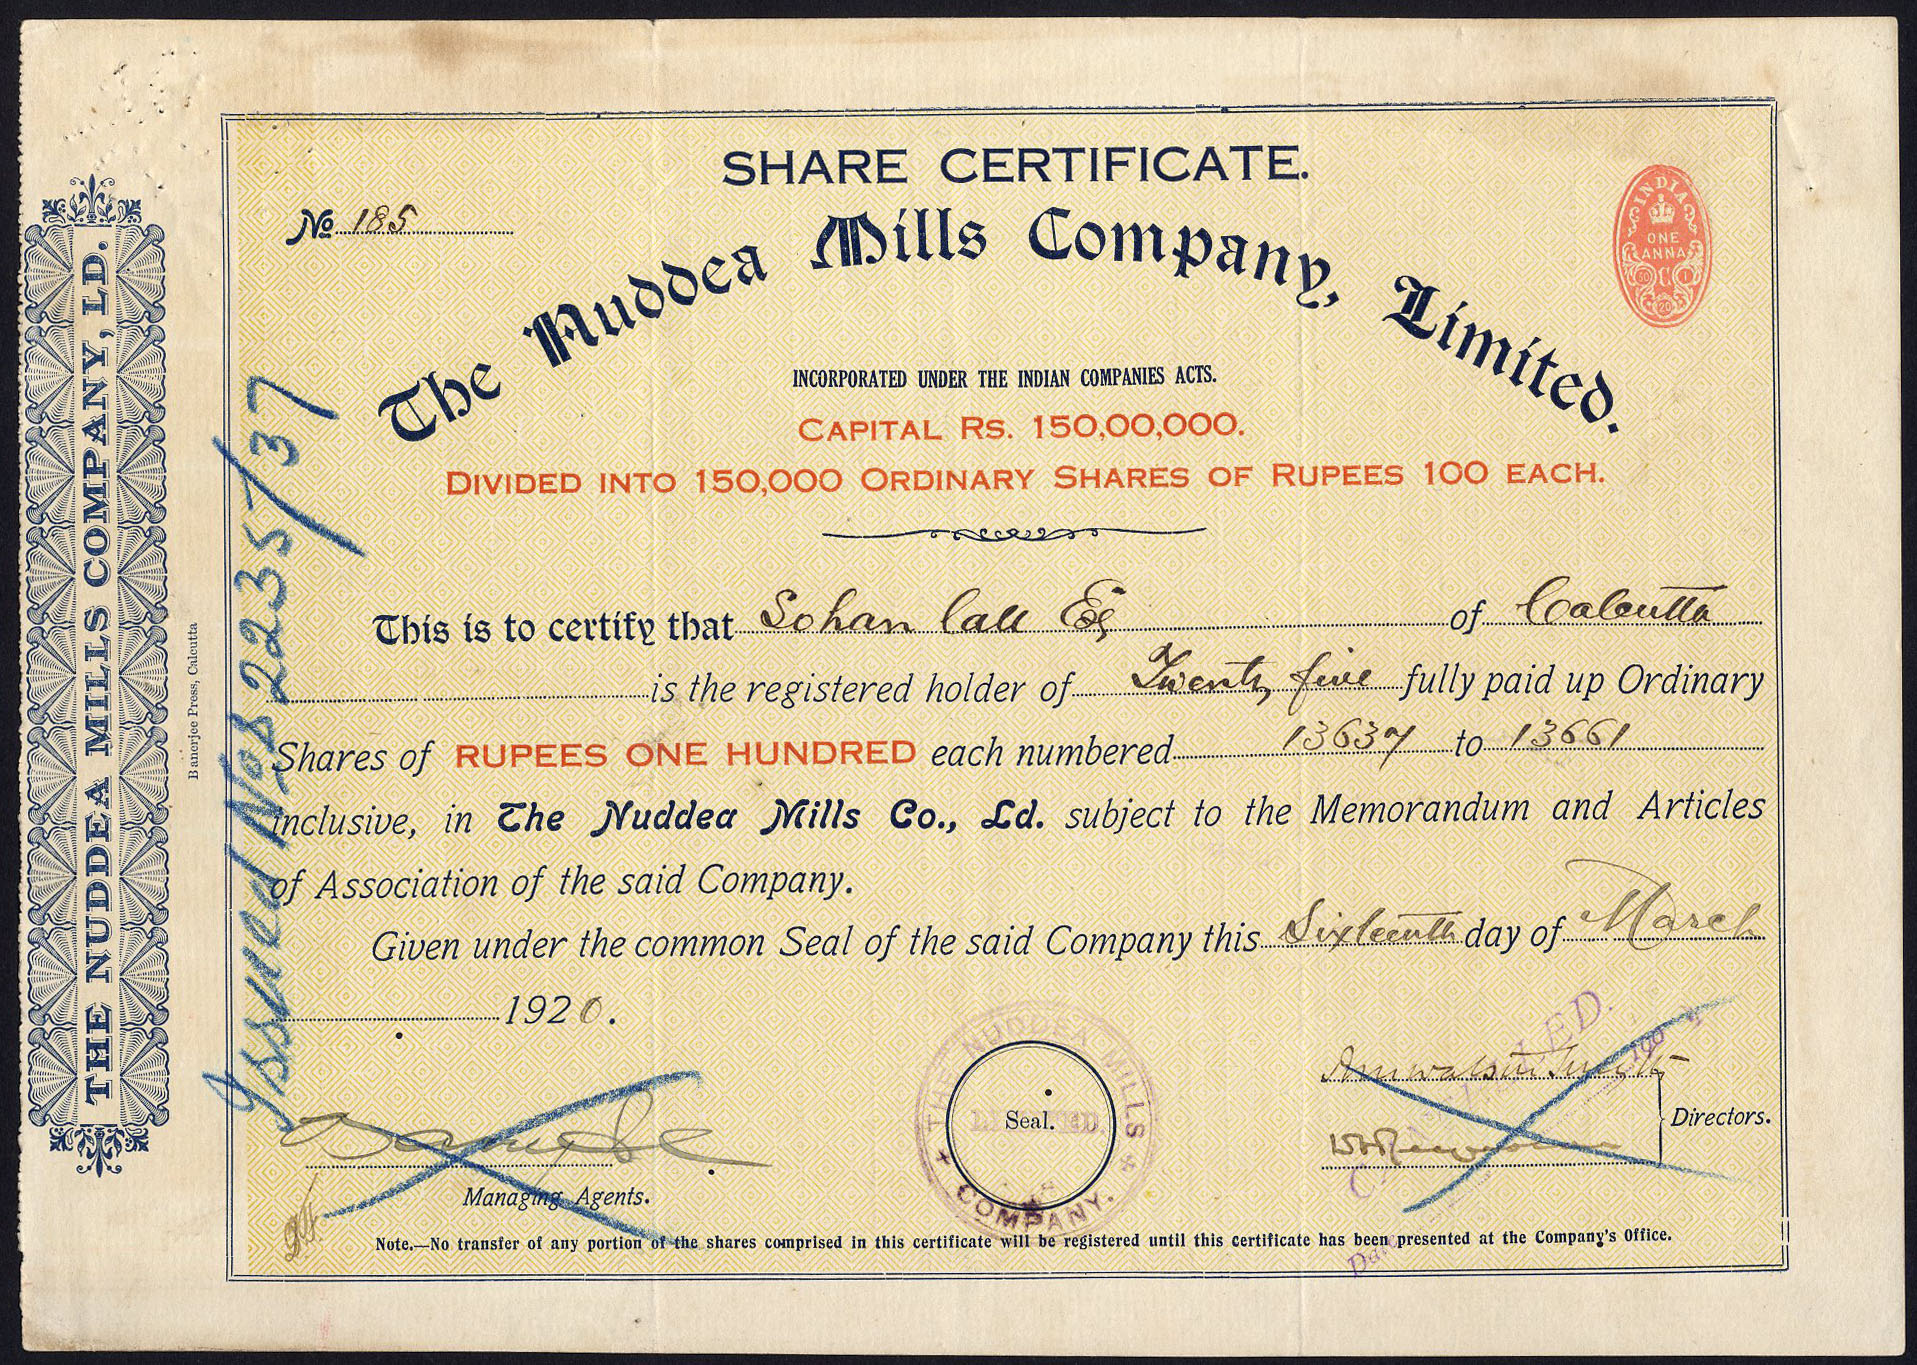 SHARE CERTIFICATE.
No 185
The Nuddea Mills Company, Limited.
INDIA
ONE
ANNA
C
20
INCORPORATED UNDER THE INDIAN COMPANIES ACTS.
CAPITAL RS. 150,00,000.
DIVIDED INTO 150,000 ORDINARY SHARES OF RUPEES 100 EACH.
This is to certify that Sohan Lall Esq of Calcutta
is the registered holder of Twenty five fully paid up Ordinary
Shares of RUPEES ONE HUNDRED each numbered 13637 to 13661
inclusive, in The Nuddea Mills Co., Ld. subject to the Memorandum and Articles
of Association of the said Company.
Given under the common Seal of the said Company this Sixteenth day of March
1920.
THE NUDDEA MILLS
LIMITED.
COMPANY.
Seal.
CANCELLED.
Date
Directors.
Managing Agents.
Note.—No transfer of any portion of the shares comprised in this certificate will be registered until this certificate has been presented at the Company's Office.
Issued Nos 2235/37
THE NUDDEA MILLS COMPANY, LD.
Banerjee Press, Calcutta